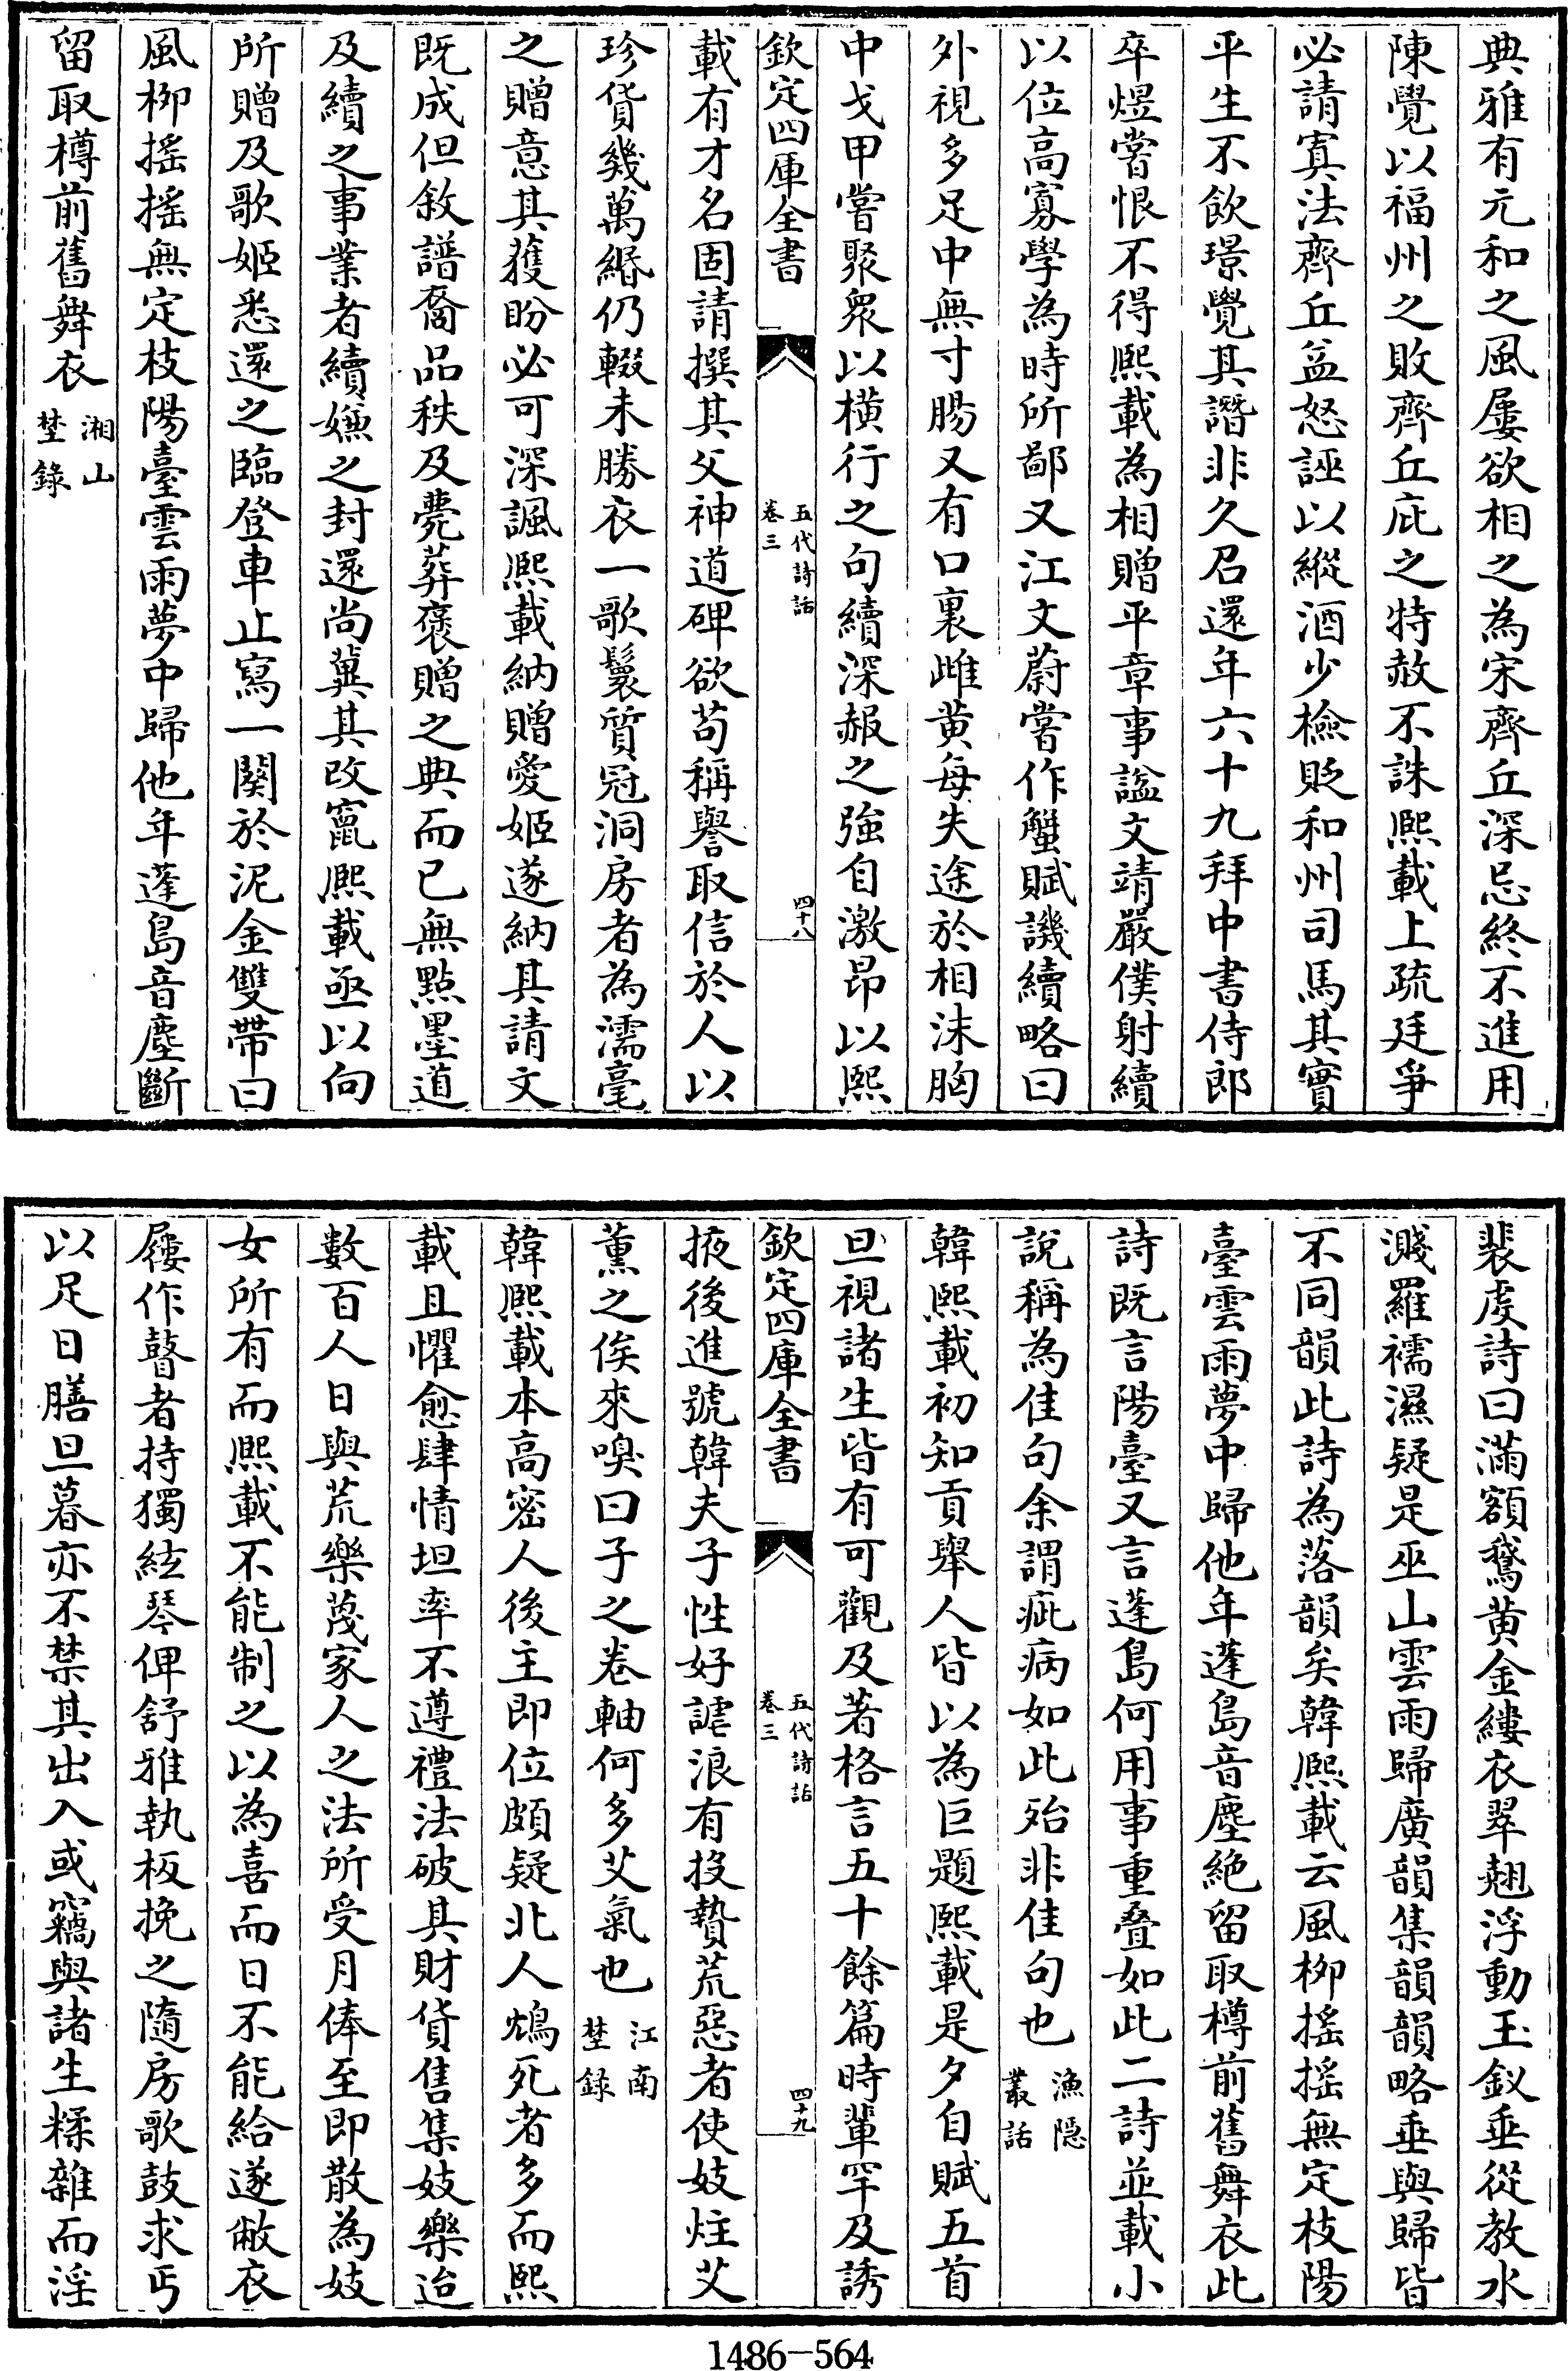 典雅有元和之風屢欲相之為宋齊丘深忌終不進用
陳覺以福州之敗齊丘庇之特赦不誅熙載上疏廷爭
必請寘法齊丘益怒誣以縱酒少檢貶和州司馬其實
平生不飲璟覺其譖非久召還年六十九拜中書侍郎
卒煜嘗恨不得熙載為相贈平章事諡文靖嚴僕射續
以位高寡學為時所鄙又江文蔚嘗作蟹賦譏續略曰
外視多足中無寸腸又有口裏雌黃每失途於相沫胸
中戈甲嘗聚衆以橫行之句續深赧之強自激昂以熙
欽定四庫全書
五代詩話
卷三
四十八
載有才名固請撰其父神道碑欲苟稱譽取信於人以
珍貨幾萬緡仍輟未勝衣一歌鬟質冠洞房者為濡毫
之贈意其獲盼必可深諷熙載納贈愛姬遂納其請文
既成但敘譜裔品秩及薨葬褒贈之典而已無點墨道
及續之事業者續嫌之封還尚冀其改竄熙載亟以向
所贈及歌姬悉還之臨登車止寫一闋於泥金雙帶曰
風柳搖搖無定枝陽臺雲雨夢中歸他年蓬島音塵斷
留取樽前舊舞衣
湘山
埜錄
裴虔詩曰滿額鵞黃金縷衣翠翹浮動玉釵垂從教水
濺羅襦濕疑是巫山雲雨歸廣韻集韻韻略垂與歸皆
不同韻此詩為落韻矣韓熙載云風柳搖搖無定枝陽
臺雲雨夢中歸他年蓬島音塵絕留取樽前舊舞衣此
詩既言陽臺又言蓬島何用事重疊如此二詩並載小
說稱為佳句余謂疵病如此殆非佳句也
漁隱
叢話
韓熙載初知貢舉人皆以為巨題熙載是夕自賦五首
旦視諸生皆有可觀及著格言五十餘篇時輩罕及誘
欽定四庫全書
五代詩話
卷三
四十九
掖後進號韓夫子性好謔浪有投贄荒惡者使妓炷艾
薰之俟來嗅曰子之卷軸何多艾氣也
江南
埜錄
韓熙載本高密人後主即位頗疑北人鴆死者多而熙
載且懼愈肆情坦率不遵禮法破其財貨售集妓樂迨
數百人日與荒樂蔑家人之法所受月俸至即散為妓
女所有而熙載不能制之以為喜而日不能給遂敝衣
屨作瞽者持獨絃琴俾舒雅執板挽之隨房歌鼓求丐
以足日膳旦暮亦不禁其出入或竊與諸生糅雜而淫
1486-564